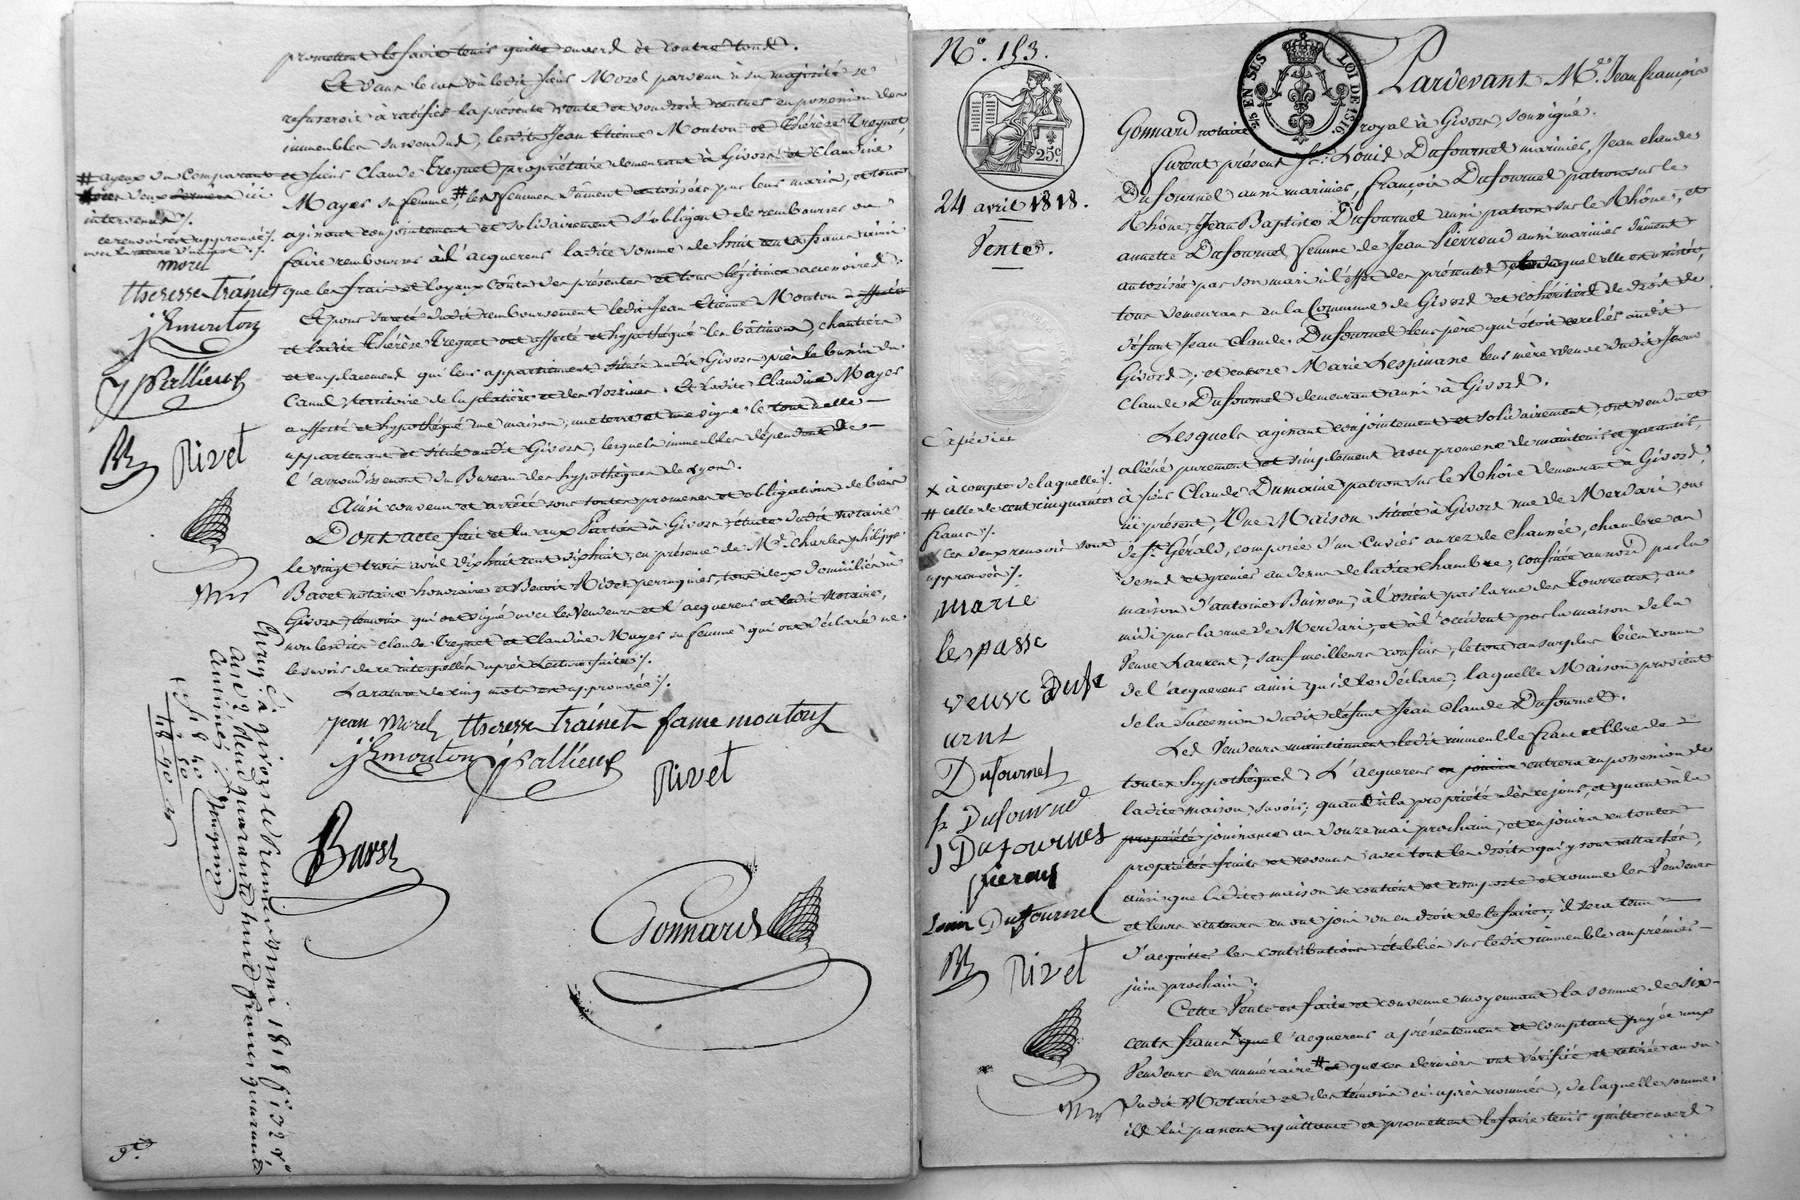 promettent le faire tenir quitte envers et contre tous.
Et dans le cas où ledit sieur Morel parvenu à sa majorité se
refuseroit à ratifier la présente vente et voudroit rentrer en possession des
immeubles susvendus, lesdits Jean Etienne Mouton et Thérèse Treynet,
et sieur Claude Treynet propriétaire demeurant à Givors et Claudine
Mayer sa femme, # les femmes dûment autorisées par leurs maris, et tous
agissant conjointement et solidairement s'obligent de rembourser ou
faire rembourser à l'acquereur ladite somme de huit cents francs ainsi
que les frais et loyaux coûts des présentes et tous légitimes accessoires.
Et pour sureté dudit remboursement ledit Jean Etienne Mouton
et ladite Thérèse Treynet ont affecté et hypothéqué les bâtimens, chantiers
et emplacement qui leur appartiennent situés audit Givors près le bassin du
Canal, territoire de la platière et des Vernes. Et ladite Claudine Mayer
a affecté et hypothéqué une maison, une terre et une vigne le tout à elle
appartenant et situé audit Givors, lesquels immeubles dépendent de
l'arrondissement du Bureau des hypothèques de Lyon.
Ainsi convenu et arrêté sous toutes promesses et obligations de biens
Dont acte fait et lu aux Parties à Givors étude dudit notaire
le vingt trois avril dix huit cent dix huit, en présence de Mr. Charles philippe
Baret notaire honoraire et Benoit Rivet perruquier, tous deux domiciliés à
Givors, témoins qui ont signé avec les Vendeurs et l'acquereur et ledit Notaire,
non lesdits Claude Treynet et Claudine Mayer sa femme qui ont déclaré ne
le savoir de ce interpellés après Lecture faite ./.
La rature de cinq mots est approuvée ./.
# ayeux du Comparant
ici
intervenus ./.
ce renvoi est approuvé ./.
morel
theresse trainet
jEmouton
Rivet
jean morel theresse trainet fame moutont
jEmouton
Rivet
Baret
Gonnard
Enreg.é à givors le trois mai 1818 f° 132
quarante huit francs quarante
centimes
N°. 153.
EN SUS
LOI DE 1816.
25c
24 avril 1818.
Vente.
Expédiée
Pardevant Me. Jean françois
Gonnard notaire royal à Givors, soussigné.
furent présent Sr. Louis Dufournel marinier, Jean claude
Dufournel aussi marinier, françois Dufournel patron sur le
Rhône, Jean Baptiste Dufournel aussi patron sur le Rhône, et
annette Dufournel femme de Jean Pierroud aussi marinier dûment
autorisée par son mari à l'effet des présentes,
tous demeurans en la Commune de Givors et cohéritiers de droit de
défunt Jean Claude Dufournel leur père qui étoit
Givors, et encore Marie Lespinasse leur mère veuve dudit Jean
Claude Dufournel demeurant aussi à Givors.
Lesquels agissant conjointement et solidairement, ont vendu et
aliéné purement et simplement avec promesse de maintenir et garantir,
à sieur Claude Dumaine patron sur le Rhône demeurant à Givors,
ici présent, Une Maison située à Givors rue de Merdari, ou
de St. Gérald, composée d'un Cuvier au rez de chaussée, chambre au
dessus et grenier au dessus de ladite chambre, confinée au nord par la
maison d'antoine Buisson, à l'orient par la rue des Tourrettes, au
midi par la rue de Merdari, et à l'occident par la maison de la
Veuve Laurent, sauf meilleurs confins, le tout au surplus bien connu
de l'acquereur ainsi qu'il le déclare, laquelle Maison provient
de la Succession dudit défunt Jean Claude Dufournel.
Les Vendeurs maintiennent ledit immeuble franc et libre de
toutes hypothèques. L'acquereur entrera en possession de
ladite maison, savoir, quant à la propriété dès ce jour, et quant à la
jouissance au douze mai prochain, et en jouira en toutes
propriétés fruits et revenus avec tous les droits qui y sont rattachés,
ainsi que ladite maison se contient et comporte et comme les Vendeurs
et leurs auteurs en ont joui ou eu droit de le faire, il sera tenu
d'acquitter les contributions établies sur ledit immeuble au premier
juin prochain.
Cette Vente est faite et convenue moyennant la somme de six
cents francs x que l'acquereur a présentement et comptant payée aux
Vendeurs en numéraire # que ces derniers ont vérifiée et retirée au vu
dudit Notaire et des témoins ci après nommés, de laquelle somme
ils lui passent quittance et promettent le faire tenir quitte envers
x à compte de laquelle ./.
# celle de cent cinquante
francs ./.
Ces deux renvois sont
approuvés ./.
marie
lespasse
veuve Dufe
urnt
Dufournel
fr Dufournel
J Dufournel
pieroud
Louis Dufournel
Rivet